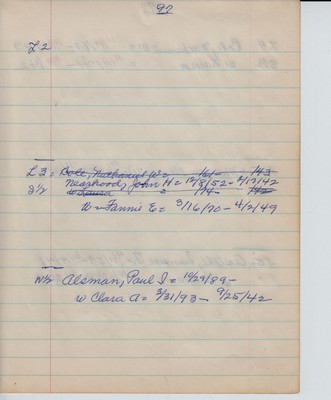 92
L 2
L 3 = Bole, Nathaniel W = 1861 - 1943
Nearhood, John H = 12/8/52 - 2/12/42
2 1/2 w Laura = 1874 - 1942
W - Fannie E = 3/16/70 - 4/2/49
N 1/2 Alsman, Paul I = 10/29/89 -
w Clara A = 3/31/93 - 9/25/42